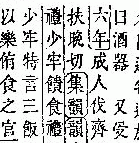 曰酒器又受
六年成人伐齊
扶晚切集韻韻
禮少牢饋食禮
少牢特言三飯
以樂侑食之官